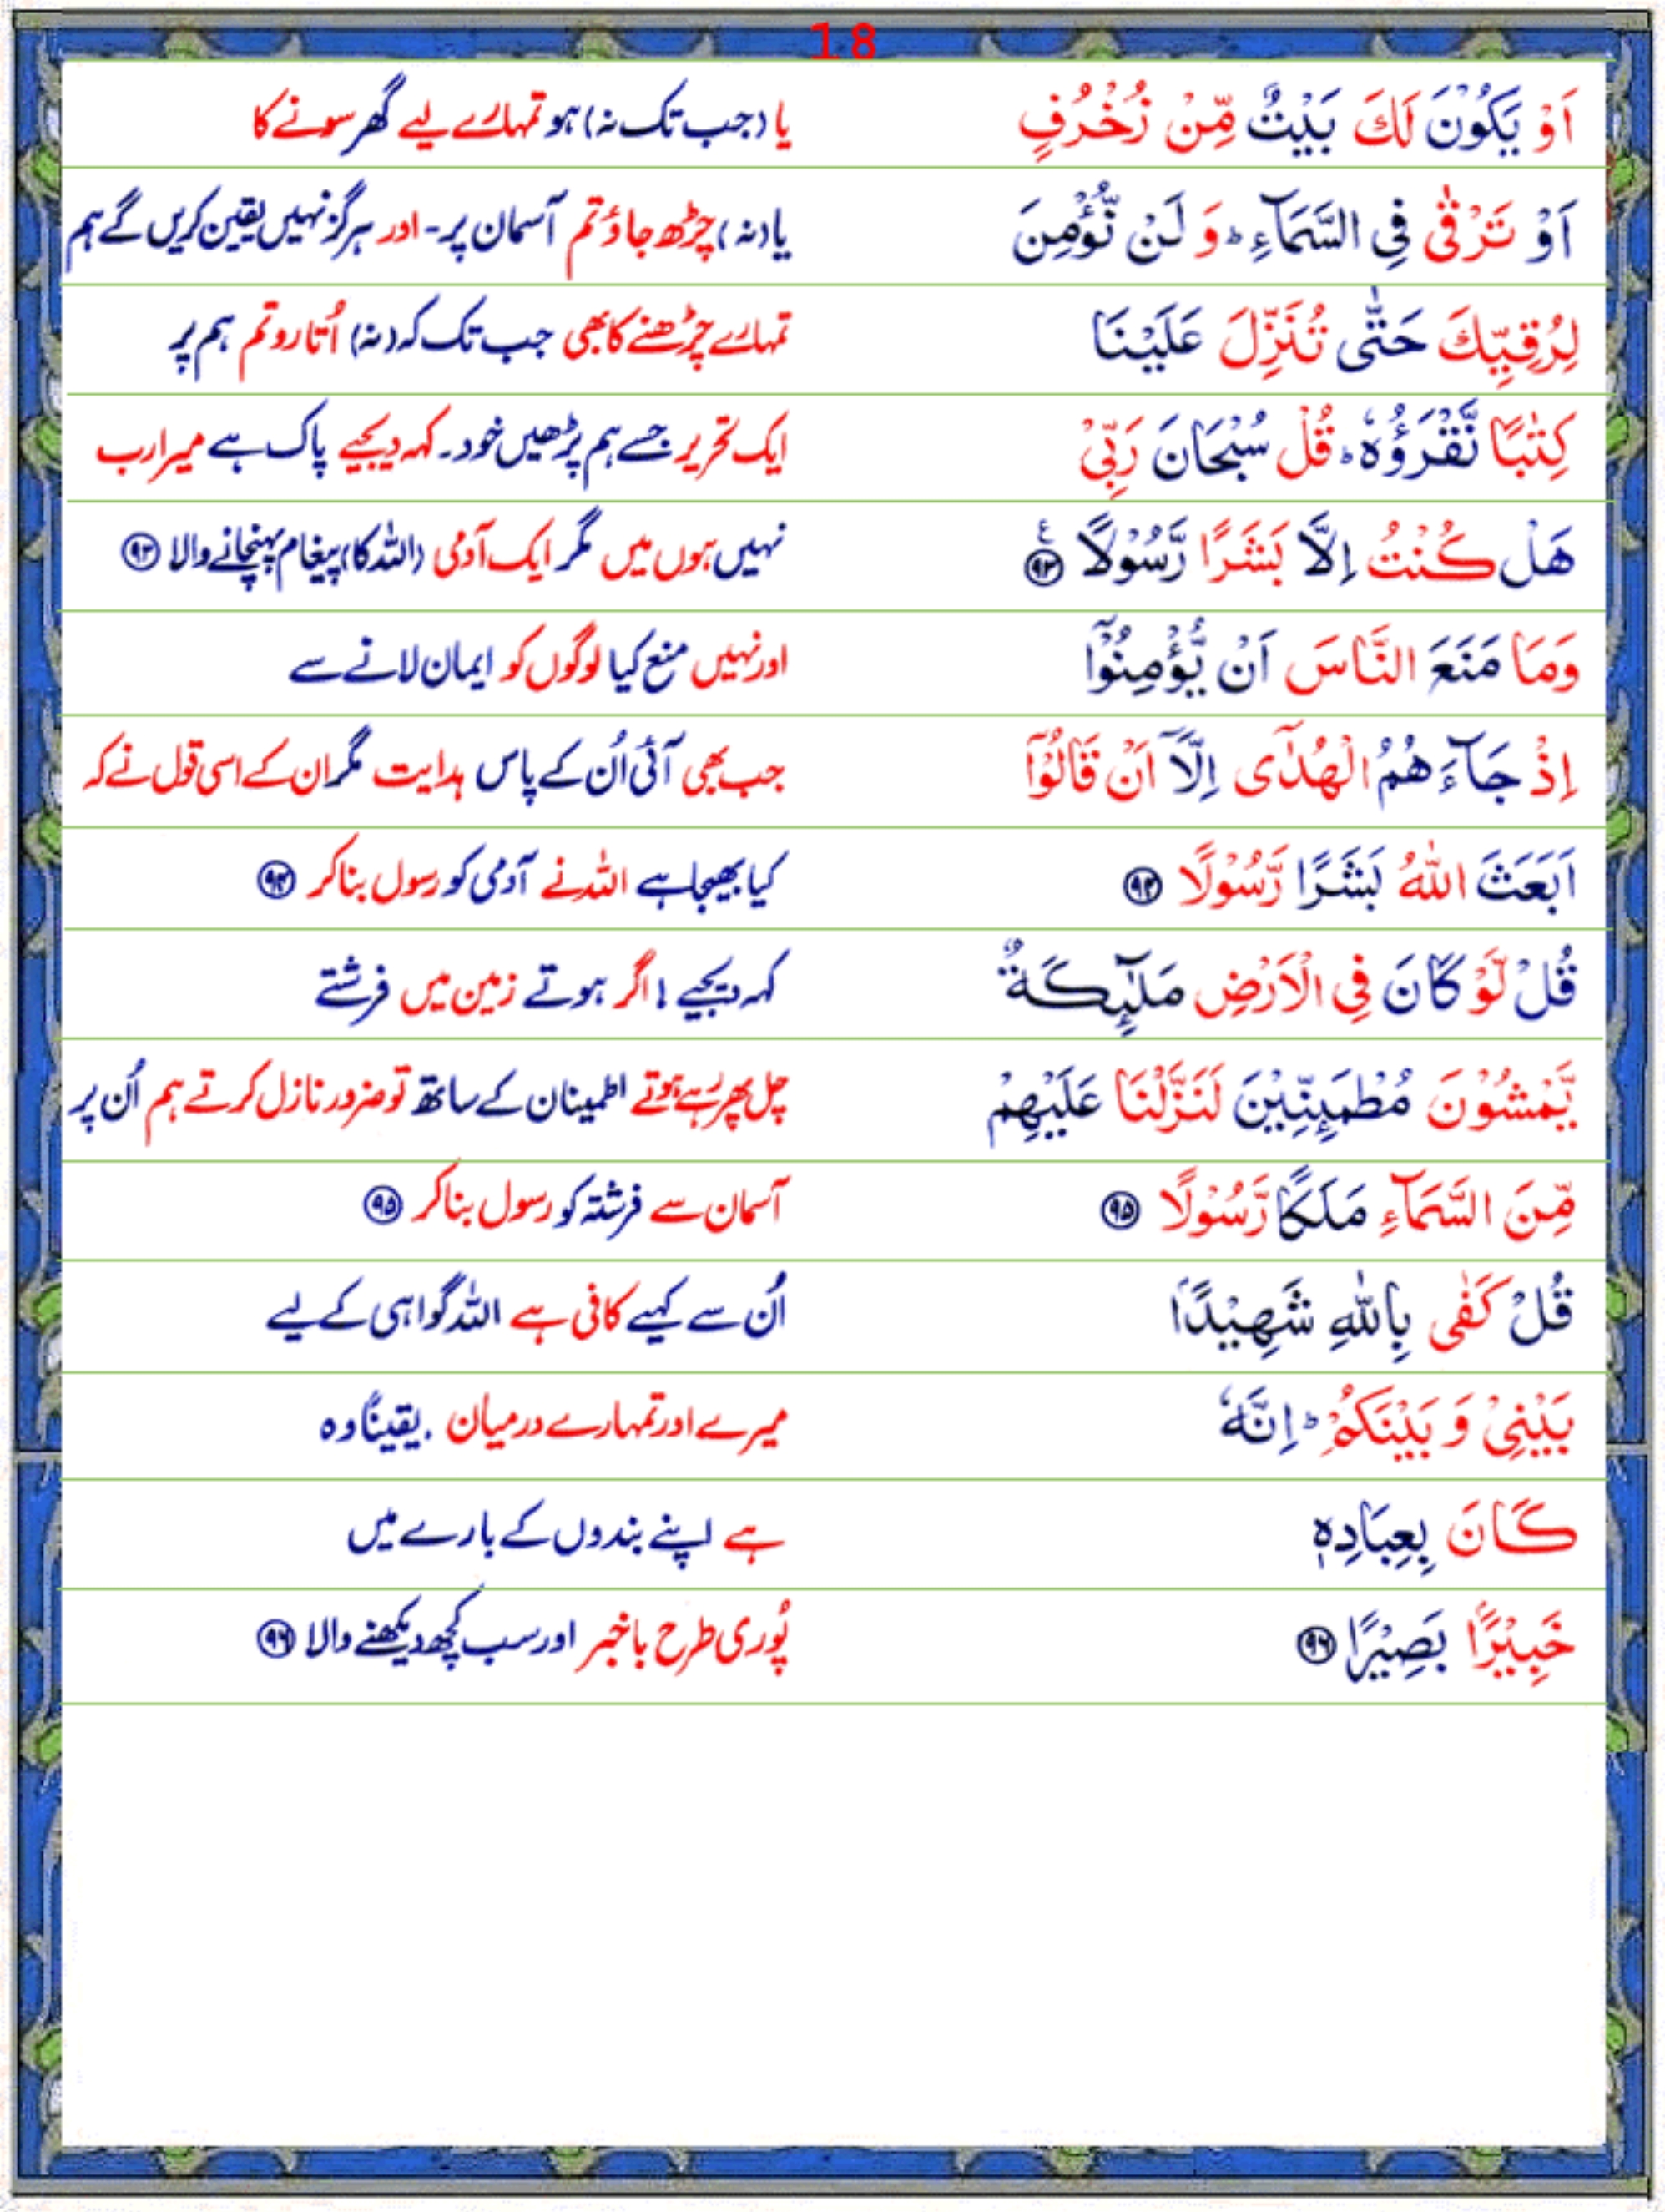 18
اَوْ يَكُوْنَ لَكَ بَيْتٌ مِّنْ زُخْرُفٍ یا (جب تک نہ) ہو تمہارے لیے گھر سونے کا
اَوْ تَرْقٰى فِى السَّمَآءِ ؕ وَ لَنْ نُّؤْمِنَ یا (نہ) چڑھ جاؤ تم آسمان پر۔ اور ہرگز نہیں یقین کریں گے ہم
لِرُقِيِّكَ حَتّٰى تُنَزِّلَ عَلَيْنَا تمہارے چڑھنے کا بھی جب تک کہ (نہ) اُتارو تم ہم پر
كِتٰبًا نَّقْرَؤُهٗ ؕ قُلْ سُبْحَانَ رَبِّىْ ایک تحریر جسے ہم پڑھیں خود۔ کہہ دیجیے پاک ہے میرا رب
هَلْ كُنْتُ اِلَّا بَشَرًا رَّسُوْلًا ۧ ﴿۹۳﴾ نہیں ہوں میں مگر ایک آدمی (اللہ کا) پیغام پہنچانے والا ﴿۹۳﴾
وَمَا مَنَعَ النَّاسَ اَنْ يُّؤْمِنُوْٓا اور نہیں منع کیا لوگوں کو ایمان لانے سے
اِذْ جَآءَهُمُ الْهُدٰٓى اِلَّاۤ اَنْ قَالُوْٓا جب بھی آئی اُن کے پاس ہدایت مگر ان کے اسی قول نے کہ
اَبَعَثَ اللّٰهُ بَشَرًا رَّسُوْلًا ﴿۹۴﴾ کیا بھیجا ہے اللہ نے آدمی کو رسول بنا کر ﴿۹۴﴾
قُلْ لَّوْ كَانَ فِى الْاَرْضِ مَلٰٓئِكَةٌ کہہ دیجیے! اگر ہوتے زمین میں فرشتے
يَّمْشُوْنَ مُطْمَئِنِّيْنَ لَنَزَّلْنَا عَلَيْهِمْ چل پھر رہے ہوتے اطمینان کے ساتھ تو ضرور نازل کرتے ہم اُن پر
مِّنَ السَّمَآءِ مَلَكًا رَّسُوْلًا ﴿۹۵﴾ آسمان سے فرشتہ کو رسول بنا کر ﴿۹۵﴾
قُلْ كَفٰى بِاللّٰهِ شَهِيْدًۢا اُن سے کہیے کافی ہے اللہ گواہی کے لیے
بَيْنِىْ وَ بَيْنَكُمْ ؕ اِنَّهٗ میرے اور تمہارے درمیان . یقیناً وہ
كَانَ بِعِبَادِهٖ ہے اپنے بندوں کے بارے میں
خَبِيْرًۢا بَصِيْرًا ﴿۹۶﴾ پُوری طرح باخبر اور سب کچھ دیکھنے والا ﴿۹۶﴾